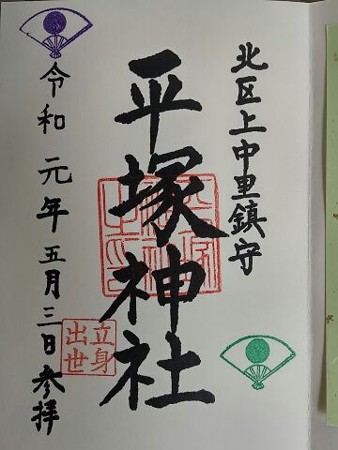 北区上中里鎮守
平塚神社
立身
出世
令和元年五月三日参拝